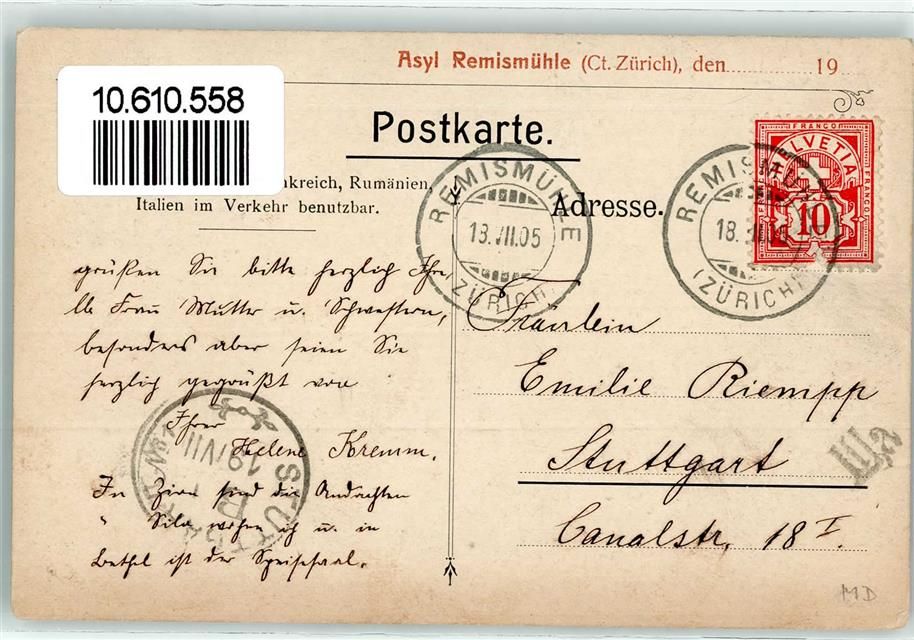 Asyl Remismühle (Ct. Zürich), den 19
10.610.558
Postkarte.
nkreich, Rumänien,
Italien im Verkehr benutzbar.
Adresse.
REMISMÜHLE
18.VII.05
(ZÜRICH)
REMISMÜHLE
18.
(ZÜRICH)
FRANCO
HELVETIA
FRANCO
10
grüßen Sie bitte herzlich Ihre
lb Frau Mutter u. Schwestern,
besonders aber seien Sie
herzlich gegrüßt von
Ihrer
Helene Kremm.
In Zion sind die Andachten
" Silo wohnen ich u. in
Bethel ist der Speisesaal.
Fräulein
Emilie Riempp
Stuttgart
Canalstr. 18 I.
STUTTGART Nr. 1
19/VII
IIIa
MD